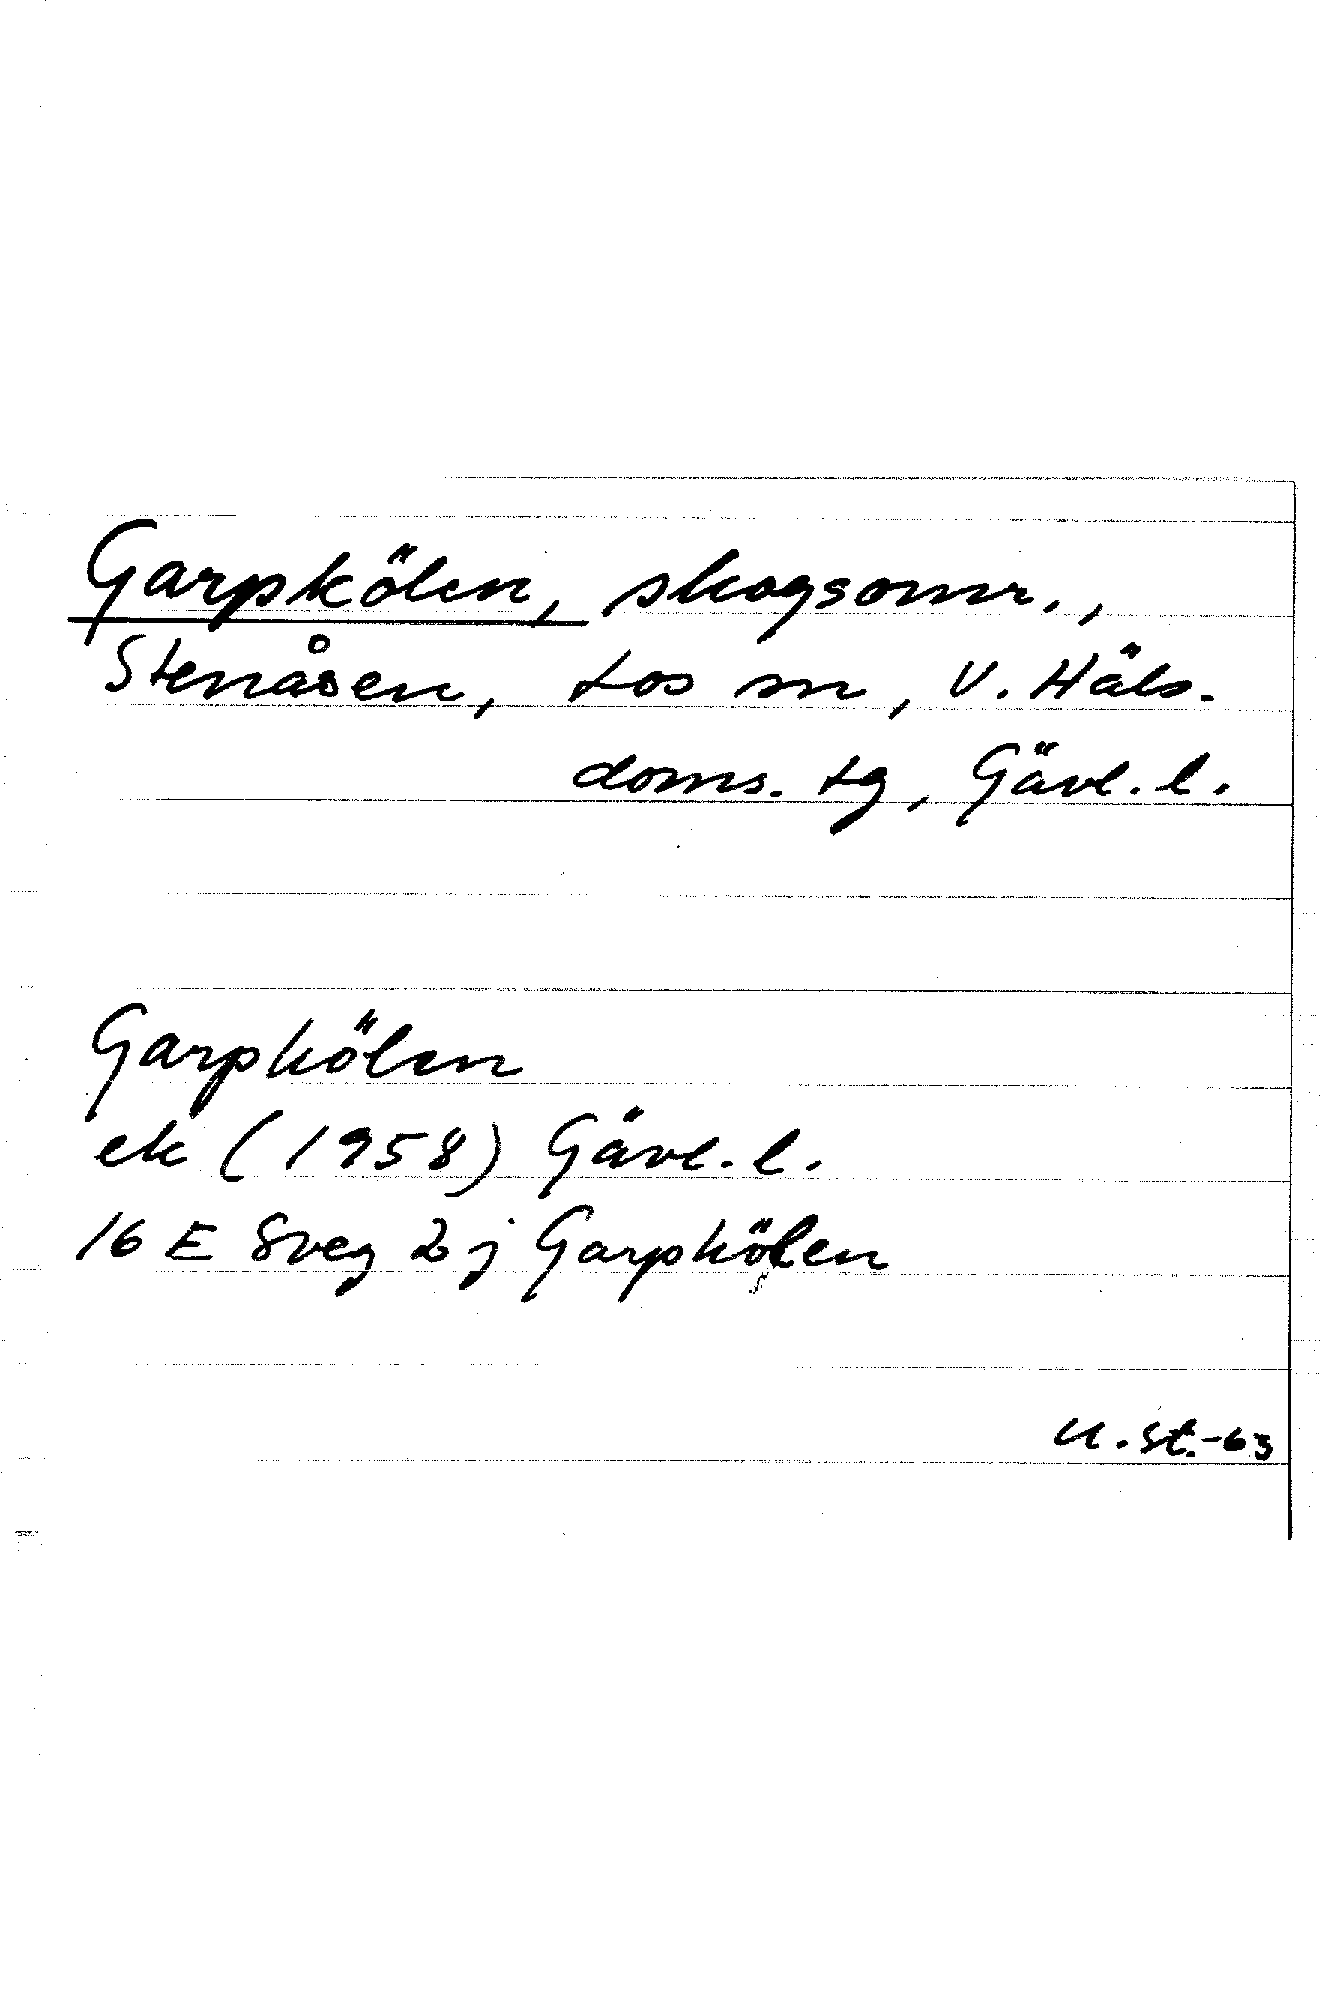 Garpkölen, skogsomr.,
Stenåsen, Los sn, V. Häls.
doms. tg, Gävl. l.
Garpkölen
ek (1958) Gävl. l.
16 E Sveg 2 j Garpkölen
U. St. -63